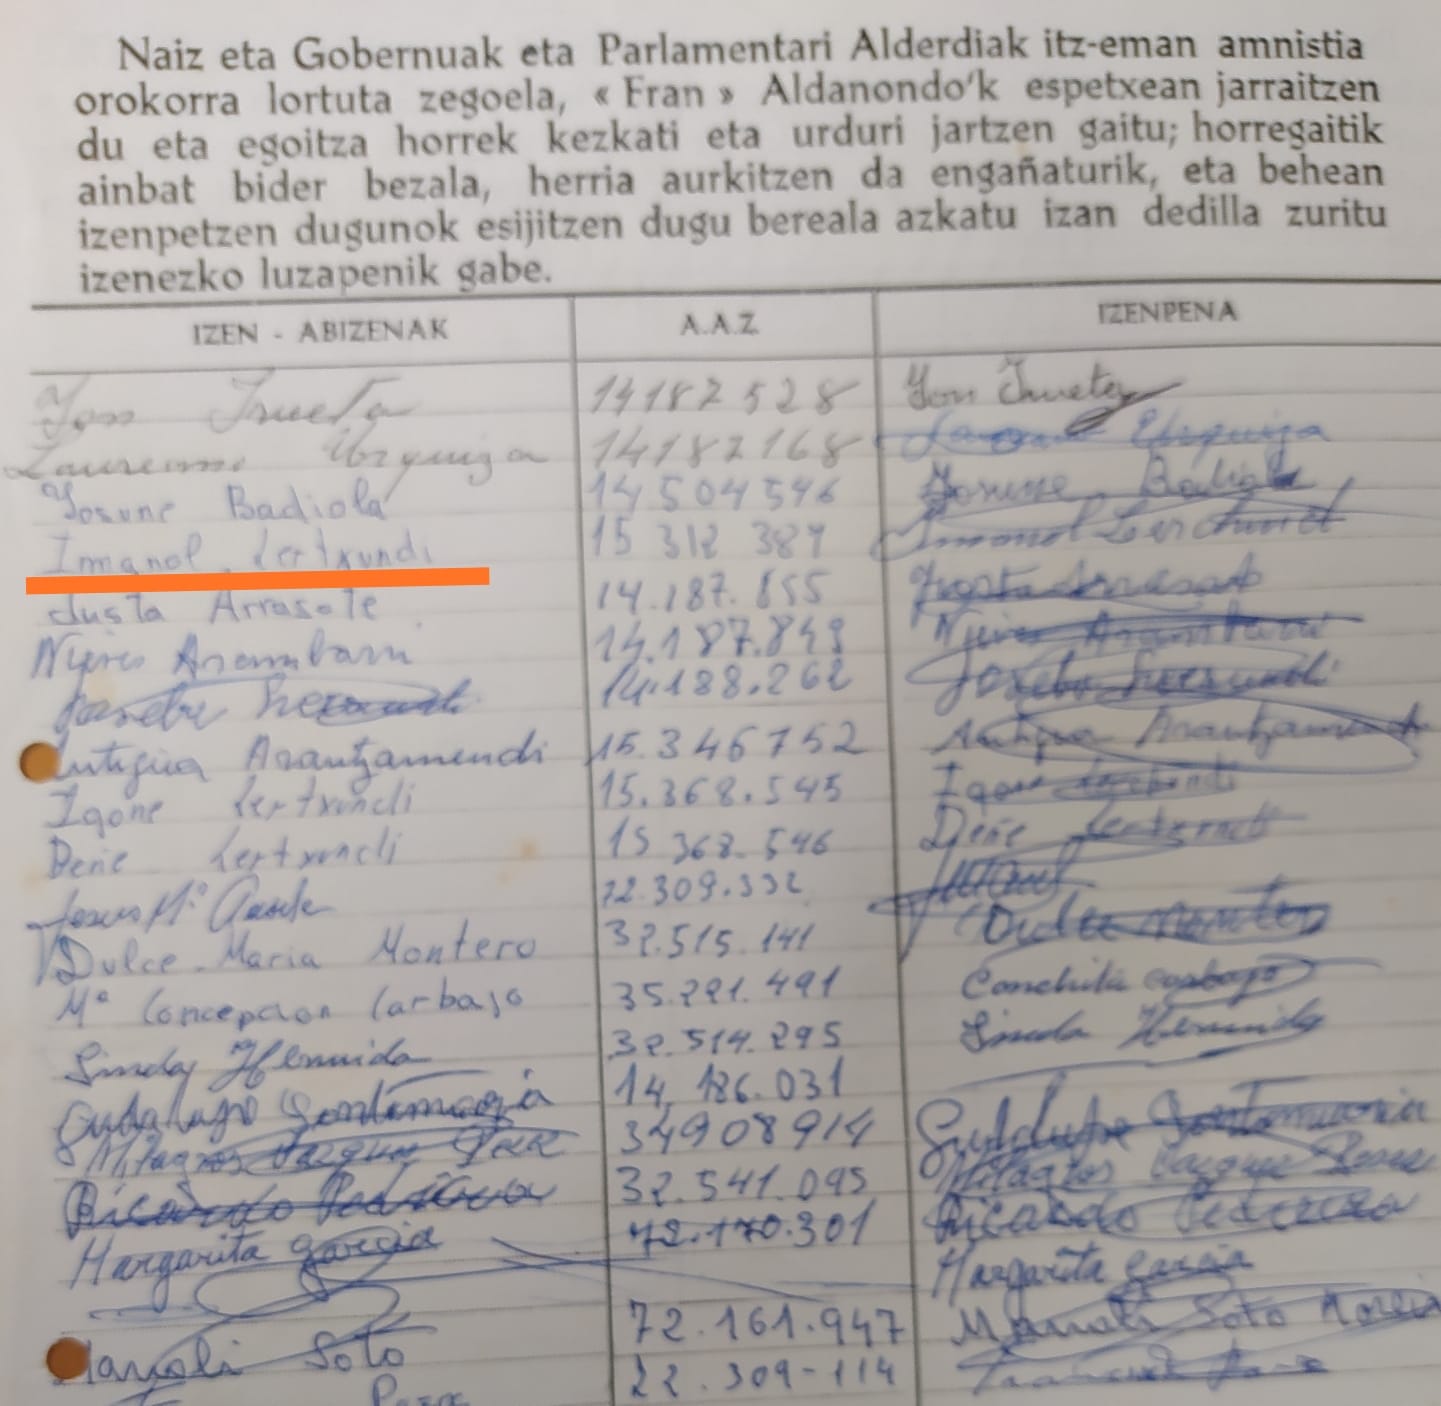 Naiz eta Gobernuak eta Parlamentari Alderdiak itz-eman amnistia
orokorra lortuta zegoela, « Fran » Aldanondo'k espetxean jarraitzen
du eta egoitza horrek kezkati eta urduri jartzen gaitu; horregaitik
ainbat bider bezala, herria aurkitzen da engañaturik, eta behean
izenpetzen dugunok esijitzen dugu bereala azkatu izan dedilla zuritu
izenezko luzapenik gabe.
IZEN - ABIZENAK A.A.Z. IZENPENA
Jon Irueta 14187528 Jon Irueta
Urquiza 14182168 Urquiza
Josune Badiola 14504546 Josune Badiola
Imanol Lertxundi 15 312 389 Imanol
Justa Arrasate 14.187.855
Nieves Arambarri 14.187.849 Nieves
Joseba 14.188.262 Joseba
Antigua Arantzamendi 15.346752 Antigua Arantzamendi
Igone Lertxundi 15.368.545 Igone
Deñe Lertxundi 15 368.546 Deñe Lertxundi
Jesus Mª 72.309.332
Dulce Maria Montero 32.515.141 Dulce Montero
Mª Concepcion Carbajo 35.221.491 Conchita Carbajo
Hermida 32.514.295 Hermida
14,186.031
Milagros Vazquez 34908914 Milagros Vazquez Perez
Ricardo Pedreira 32.541.095 Ricardo Pedreira
Margarita Garcia 72.170.301 Margarita Garcia
Manoli Soto 72.161.947 Manoli Soto
22.309-114